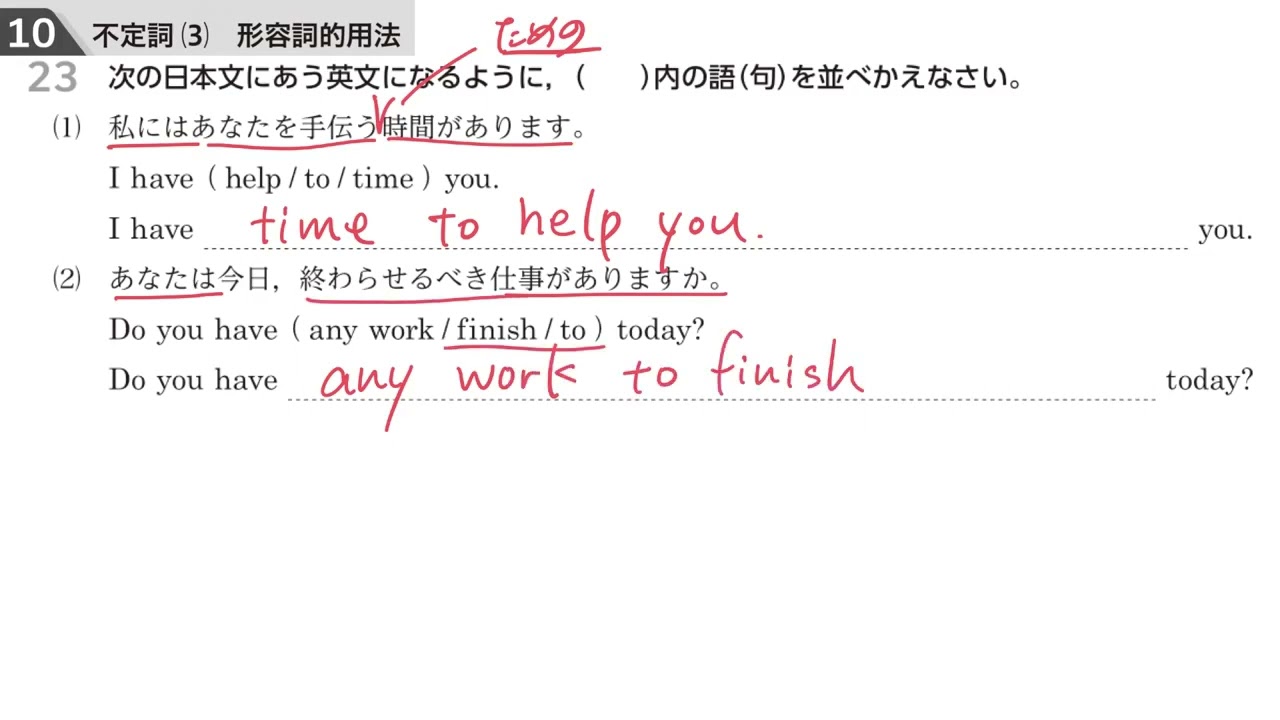 10 不定詞(3) 形容詞的用法
ための
23 次の日本文にあう英文になるように，（ ）内の語(句)を並べかえなさい。
(1) 私にはあなたを手伝う時間があります。
I have ( help / to / time ) you.
I have time to help you. you.
(2) あなたは今日，終わらせるべき仕事がありますか。
Do you have ( any work / finish / to ) today?
Do you have any work to finish today?